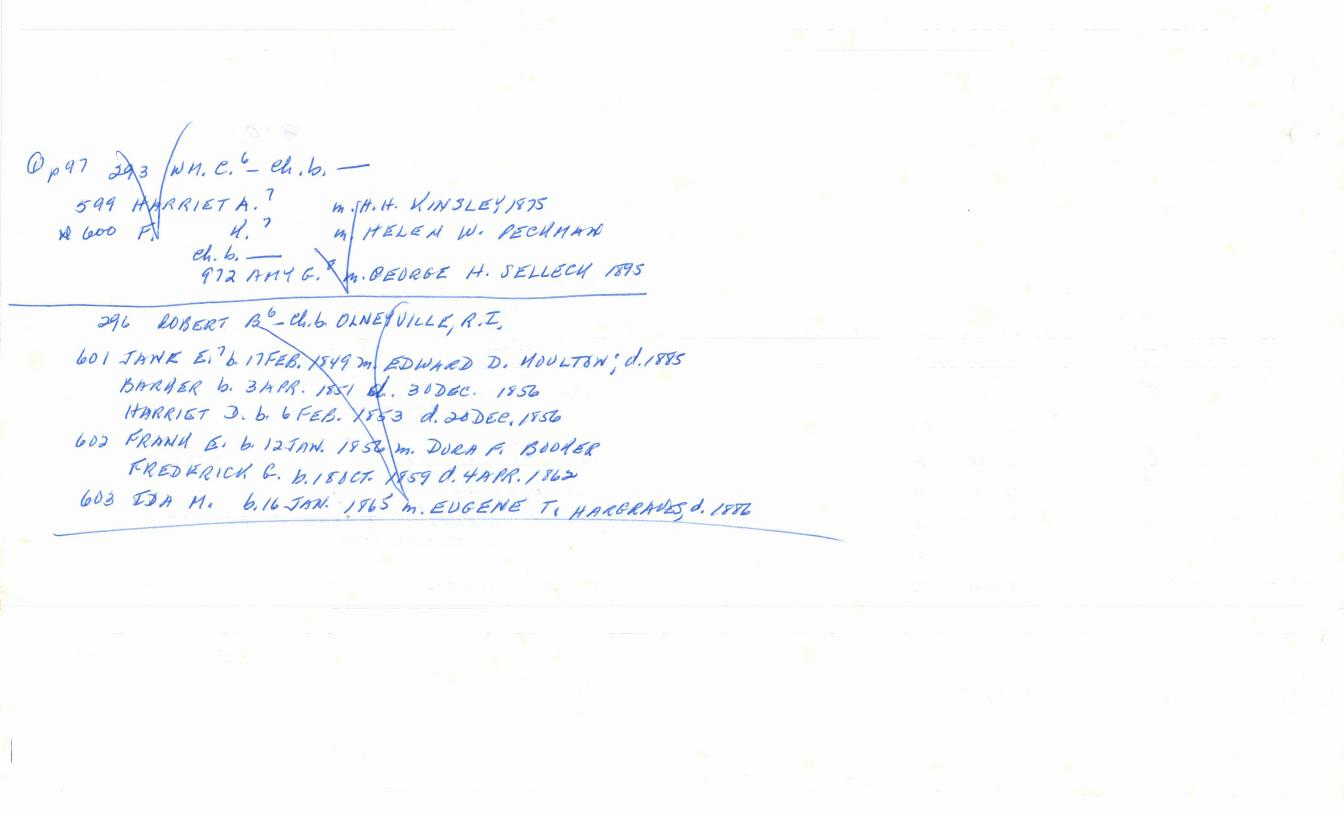 ① p97 293 WM. C.⁶ – Ch.b. —
599 HARRIET A.⁷ m. H.H. KINSLEY 1875
600 F. H.⁷ m. HELEN W. PECKHAM
Ch.b. —
972 AMY G.⁸ m. GEORGE H. SELLECK 1895
296 ROBERT B⁶ – Ch.b. OLNEYVILLE, R.I.
601 JANE E.⁷ b. 17 FEB. 1849 m. EDWARD D. MOULTON; d. 1885
BARKER b. 3 APR. 1851 d. 30 DEC. 1856
HARRIET D. b. 6 FEB. 1853 d. 20 DEC. 1856
602 FRANK E. b. 12 JAN. 1856 m. DORA F. BOOKER
FREDERICK G. b. 18 OCT. 1859 d. 4 APR. 1862
603 IDA M. b. 16 JAN. 1865 m. EUGENE T. HARGRAVES, d. 1886